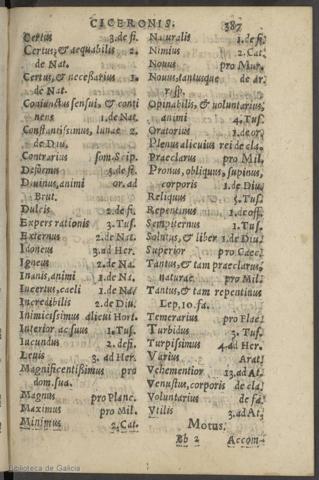 CICERONIS. 387
Certus 3.de fi.
Certus, & aequabilis 2.
de Nat.
Certus, & necessarius 1.
de Nat.
Coniunctus sensui, & conti
nens 1.de Nat.
Constantissimus, lunae 2.
de Diu.
Contrarius som.Scip.
Deformis 5.de fi.
Diuinus, animi or.ad
Brut.
Dulcis 2.de fi.
Expers rationis 3.Tus.
Externus 2.de Nat.
Idoneus 3.ad Her.
Igneus 2.de Na.
Inanis, animi 1.de Na.
Incertus, caeli 1.de Na.
Incredibilis 2.de Diu.
Inimicissimus alicui Hort.
Interior ac suus 1.Tus.
Iucundus 2.de fi.
Leuis 3.ad Her.
Magnificentissimus pro
dom.sua.
Magnus pro Planc.
Maximus pro Mil.
Minimus 2.Cat.
Naturalis 1.de fi.
Nimius 2.Cat.
Nouus pro Mur.
Nouus, tantusque de ar.
resp.
Opinabilis, & voluntarius,
animi 4.Tus.
Oratorius 1.de or.
Plenus alicuius rei de cla.
Praeclarus pro Mil.
Pronus, obliquus, supinus,
corporis 1.de Diu.
Reliquus 5.Tus.
Repentinus 1.de off.
Sempiternus 1.Tus.
Solutus, & liber 1.de Diu.
Superior pro Caec.
Tantus, & tam praeclarus,
naturae pro Mil.
Tantus, & tam repentinus
Lep.10.fa.
Temerarius pro Plac.
Turbidus 3.Tus.
Turpissimus 4.ad Her.
Varius Arat.
Vehementior 13.ad At.
Venustus, corporis de cla.
Voluntarius de fa.
Vtilis 3.ad At.
Motus.
Bb 2 Accom-
Biblioteca de Galicia